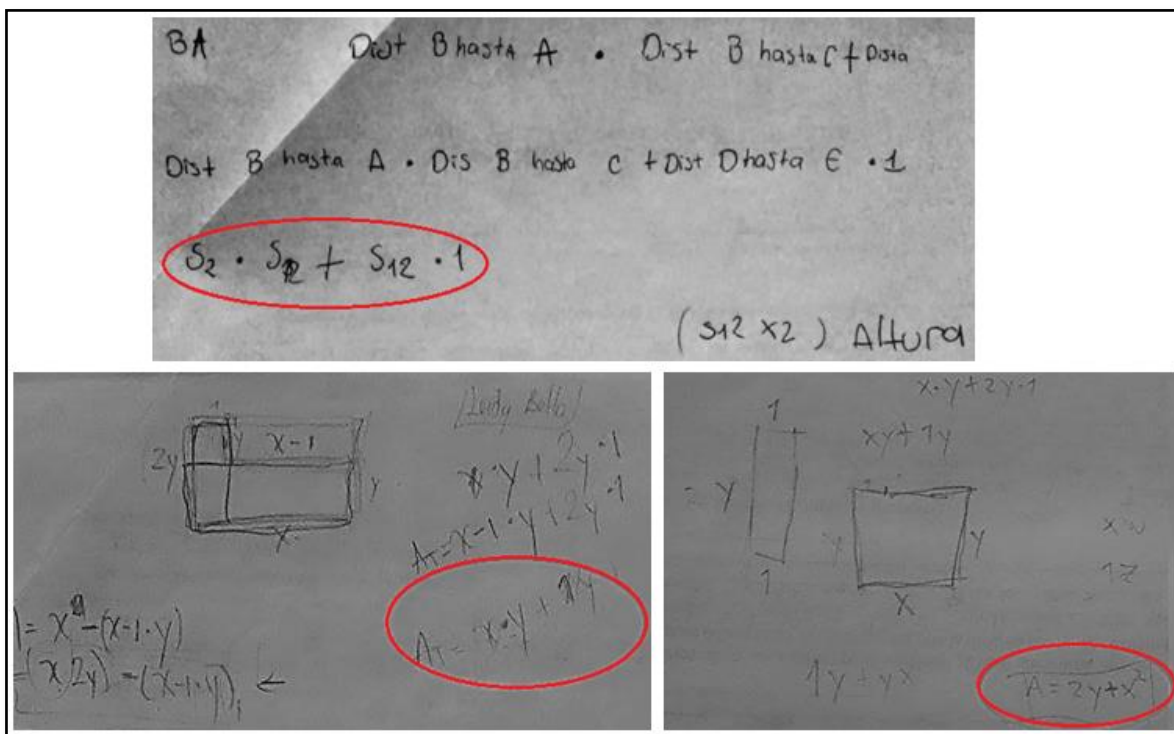 BA Dist B hasta A • Dist B hasta C + Dista
Dist B hasta A • Dis B hasta C + Dist D hasta E • 1
S₂ • S₂ + S₁₂ • 1
(S12 x2) Altura
1
2y y x-1 y
x
x•y + 2y•1
A_T = x-1•y + 2y•1
A_T = x•y + 1y
-(x-1•y)
(x 2y) - (x-1•y) ←
x•y + 2y•1
xy + 1y
1
= y
1
y y
x
1z
1y + yx
A = 2y + x²